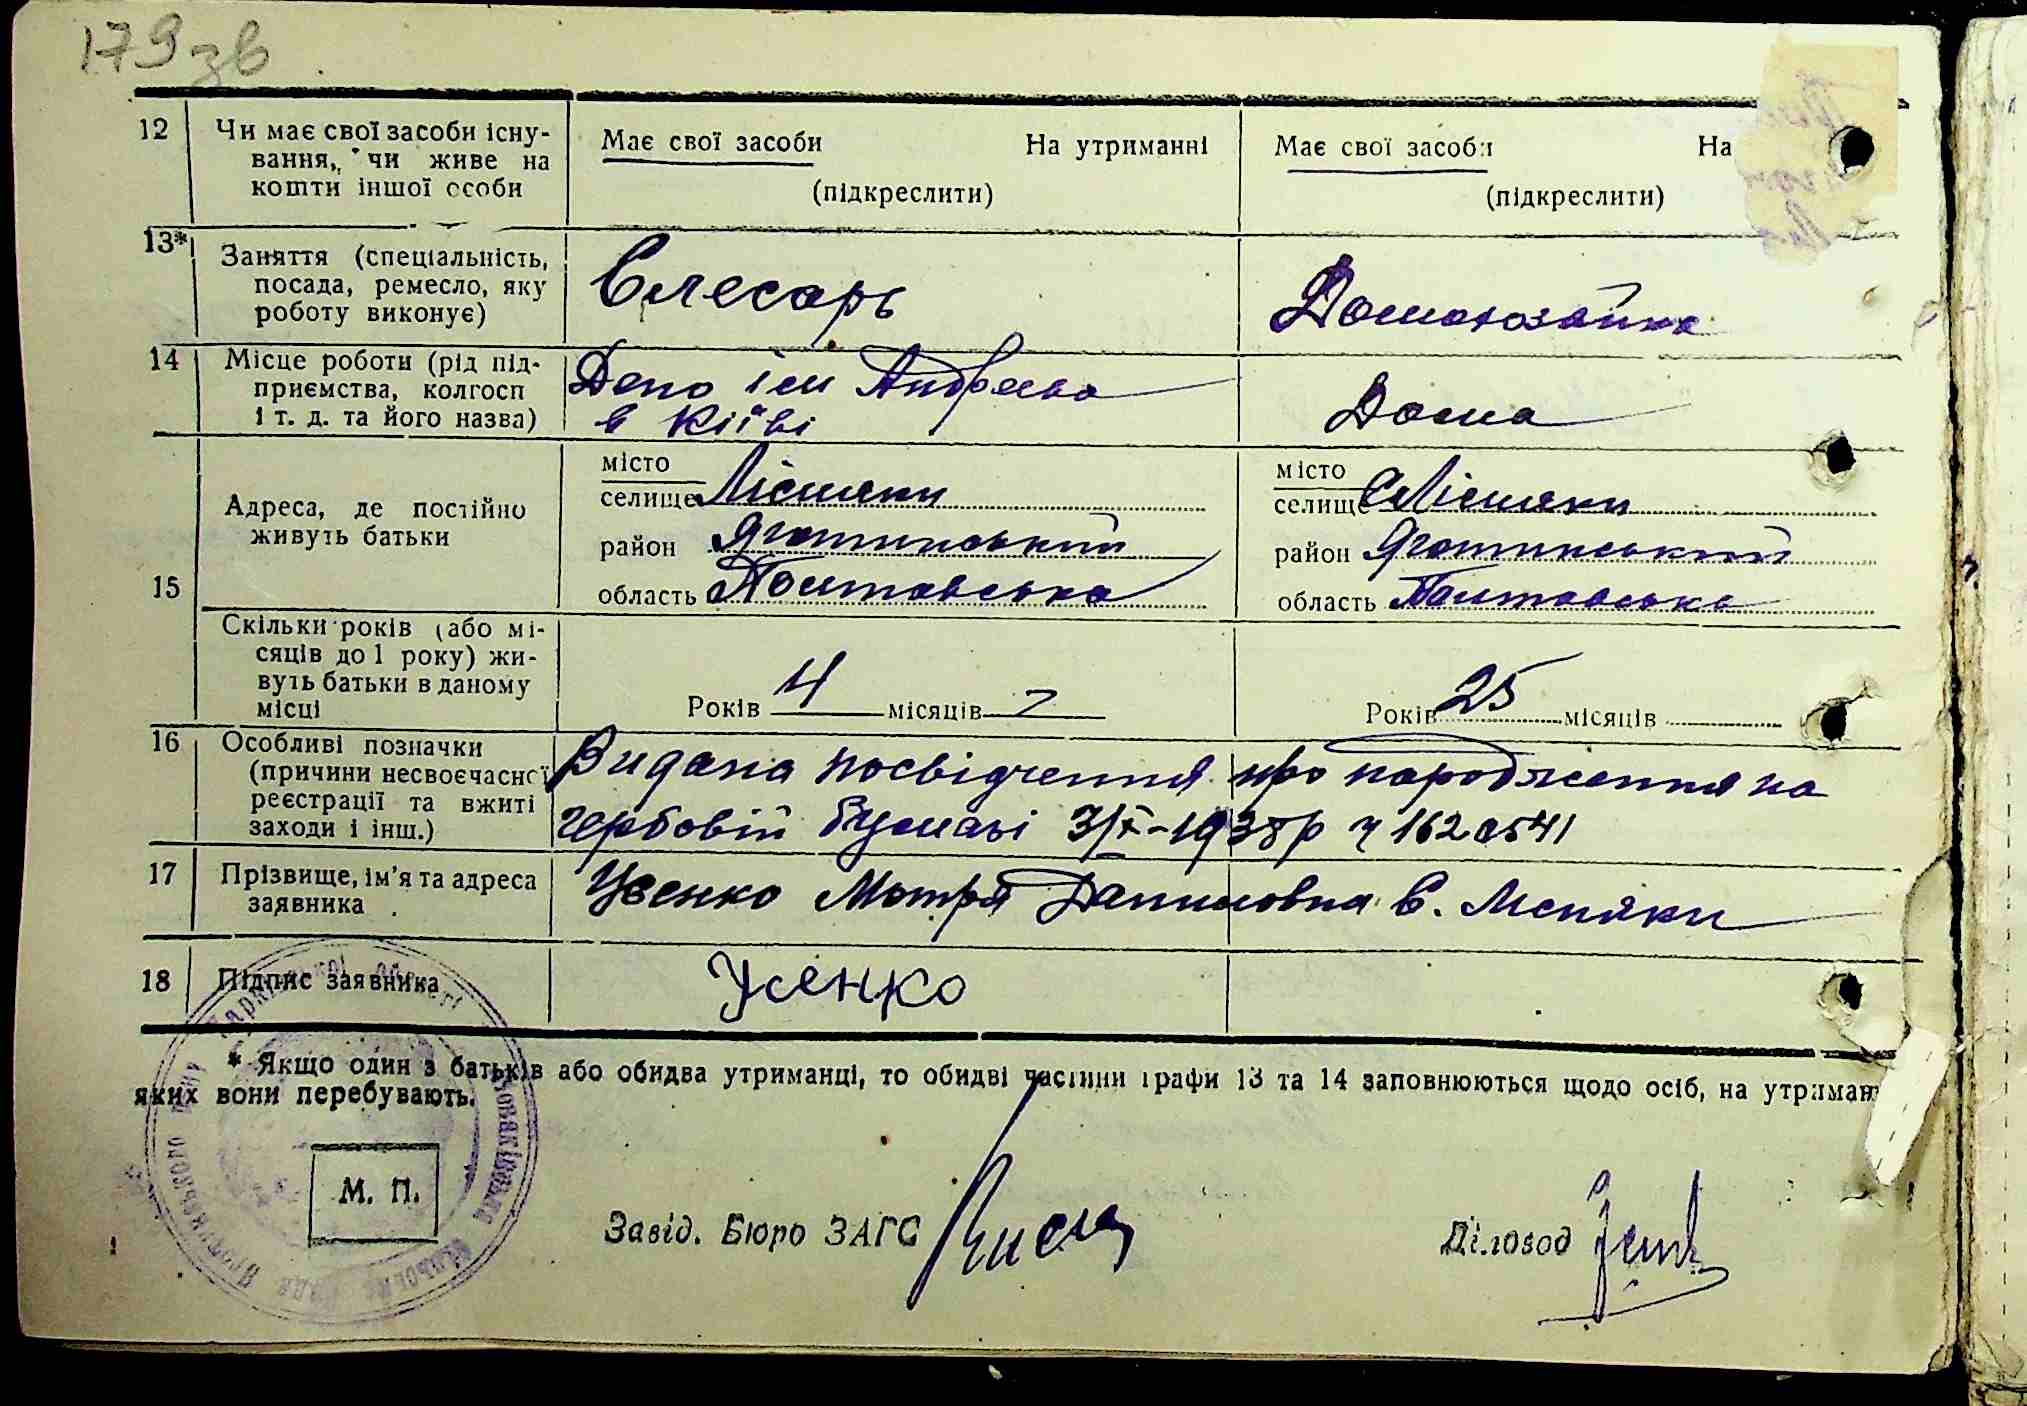 179 зв
12 Чи має свої засоби існу-
вання, чи живе на
кошти іншої особи
Має свої засоби На утриманні
(підкреслити)
Має свої засоби На
(підкреслити)
13* Заняття (спеціальність,
посада, ремесло, яку
роботу виконує)
Слесарь
Домохозяйка
14 Місце роботи (рід під-
приємства, колгосп
і т. д. та його назва)
Депо ім Андрєєва
в Київі
Дома
15
Адреса, де постійно
живуть батьки
місто
селище Лісняки
район Яготинський
область Полтавська
місто
селище с Лісняки
район Яготинський
область Полтавська
Скільки років (або мі-
сяців до 1 року) жи-
вуть батьки в даному
місці
Років 4 місяців 7
Років 25 місяців
16 Особливі позначки
(причини несвоєчасної
реєстрації та вжиті
заходи і інш.)
Видана посвідчення про народження на
гербовій бумазі 3/X-1938р ч 1620541
17 Прізвище, ім'я та адреса
заявника
Усенко Мотря Даниловна С. Лісняки
18 Підпис заявника
Усенко
* Якщо один з батьків або обидва утриманці, то обидві частини графи 13 та 14 заповнюються щодо осіб, на утриман
яких вони перебувають.
М. П.
Завід. Бюро ЗАГС
Діловод